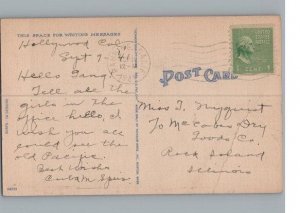 THIS SPACE FOR WRITING MESSAGES
Hollywood Cal
Sept 9-41
Hello Gang!
Tell all the
girls in the
office hello, I
wish you all
could see the
old Pacific.
Best Wishes
POST CARD
Miss T. Nyquist
To McCabes Dry
Goods Co.
Rock Island
Illinois